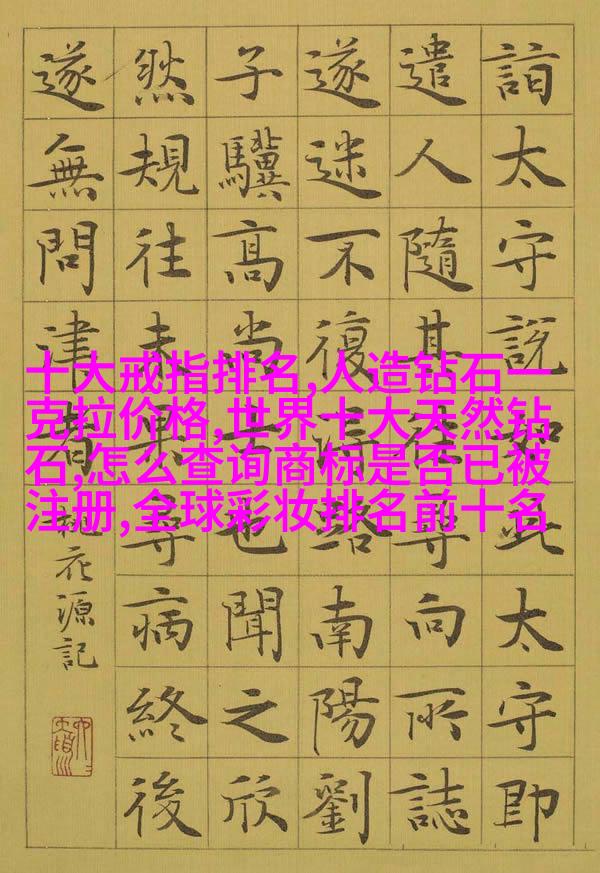 詣太守説如此太守即
遣人隨其往尋向所誌
遂迷不復得路南陽劉
子驥高尚士也聞之欣
然規往未果尋病終後
遂無問津者
桃花源記
十大戒指排名,人造钻石一
克拉价格,世界十大天然钻
石,怎么查询商标是否已被
注册,全球彩妆排名前十名